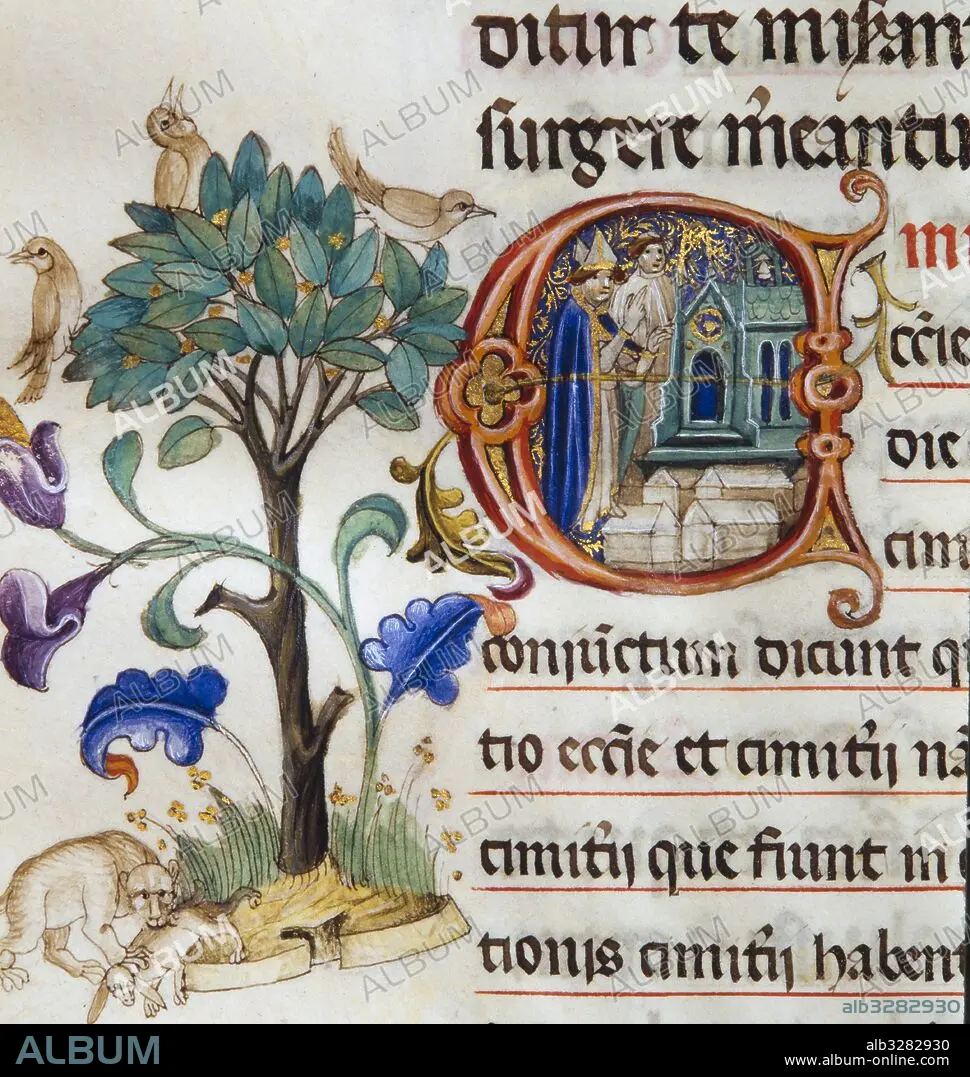 ditur te misan
surgere m̃eantu
cc̃ie
die
cim
coniũctum dicunt q
tio ecc̃ie et cimit̃ij nã
cimit̃ij que fiunt in
tionis cimit̃ij habent
alb3282930
ALBUM
alb3282930
www.album-online.com